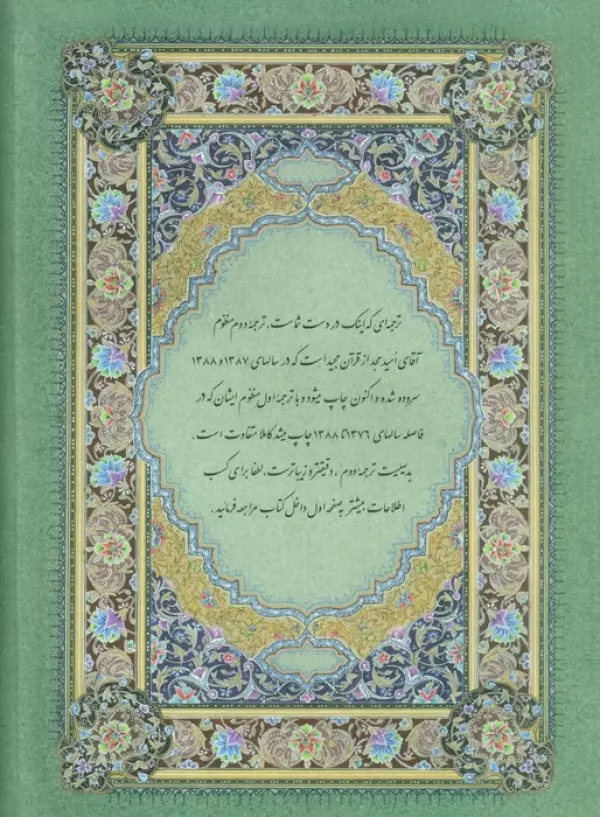 ترجمه‌ای که اینک در دست شماست، ترجمهٔ دوم منظوم
آقای اُمید مجد از قرآن مجید است که در سالهای ۱۳۸۷ و ۱۳۸۸
سروده شده و اکنون چاپ میشود و با ترجمهٔ اول منظوم ایشان که در
فاصله سالهای ۱۳۷۶ تا ۱۳۸۸ چاپ میشد کاملا متفاوت است.
بدیهیست ترجمهٔ دوم، دقیقتر و زیباترست، لطفا برای کسب
اطلاعات بیشتر به صفحه اول داخل کتاب مراجعه فرمائید.